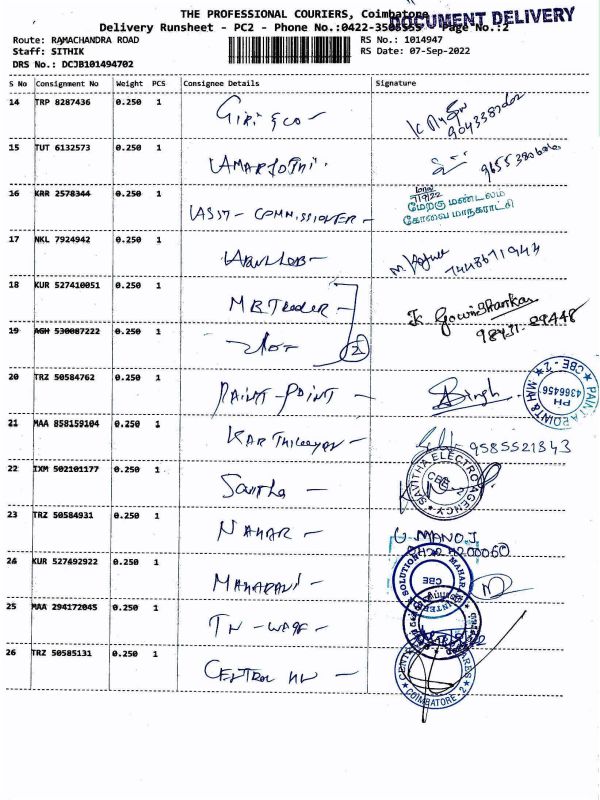 THE PROFESSIONAL COURIERS, Coimbatore
DOCUMENT DELIVERY
Delivery Runsheet - PC2 - Phone No.:0422-3508555 Page No.:2
Route: RAMACHANDRA ROAD
RS No.: 1014947
Staff: SITHIK
RS Date: 07-Sep-2022
DRS No.: DCJB101494702
S No Consignment No Weight PCS Consignee Details Signature
14 TRP 8287436 0.250 1 GIRI & CO
15 TUT 6132573 0.250 1 AMARJOTHI
16 KRR 2578344 0.250 1 ASST - COMMISSIONER
மேற்கு மண்டலம்
கோவை மாநகராட்சி
17 NKL 7924942 0.250 1
18 KUR 527410051 0.250 1 M B Trader
K GowriShankar
19 AGH 530087222 0.250 1
2
20 TRZ 50584762 0.250 1 PAINT - POINT
Singh
PAINT POINT & MAHI
CBE - 2
PH
4366456
21 MAA 858159104 0.250 1 KARTHIKEYAN
9585521343
22 IXM 502101177 0.250 1 Savitha
SAVITHA ELECTRO AGENCY
CBE - 2
23 TRZ 50584931 0.250 1 NAHAR
MANOJ
24 KUR 527492922 0.250 1 MAHARANI
SOLUTION
CBE
25 MAA 294172045 0.250 1 TN - WAQF
26 TRZ 50585131 0.250 1 CENTRAL HW
COIMBATORE - 2